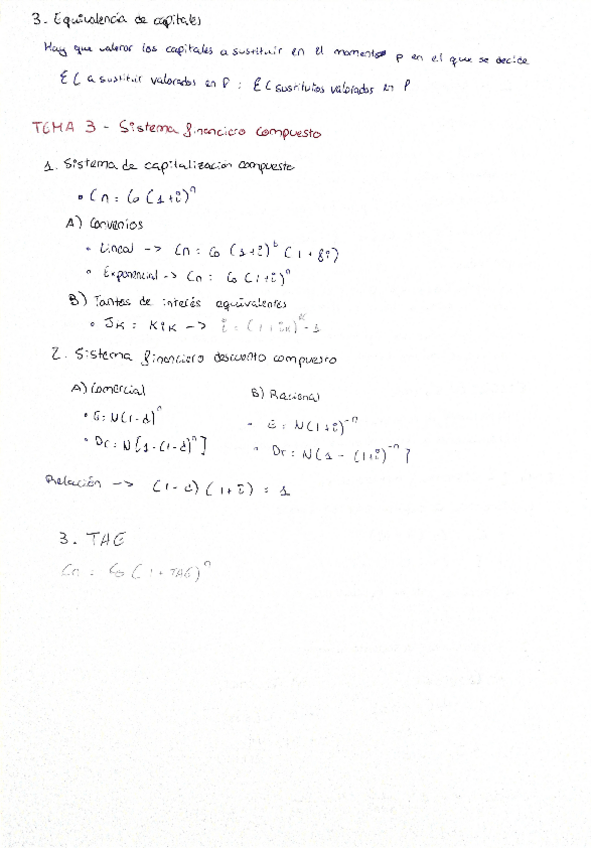 3. Equivalencia de capitales
Hay que valorar los capitales a sustituir en el momento p en el que se decide
Σ C a sustituir valorados en P = Σ C sustitutos valorados en P
TEMA 3 - Sistema financiero compuesto
1. Sistema de capitalización compuesta
• Cn = Co (1+i)^n
A) Convenios
• Lineal -> Cn = Co (1+i)^b (1 + gi)
• Exponencial -> Cn = Co (1+i)^n
B) Tantos de interés equivalentes
• Jk = K ik -> i = (1 + ik)^k - 1
2. Sistema financiero descuento compuesto
A) Comercial
• E = N(1-d)^n
• Dc = N[1-(1-d)^n]
B) Racional
- E = N(1+i)^-n
• Dr = N(1 - (1+i)^-n]
Relación -> (1-d) (1+i) = 1
3. TAE
Cn = Co (1+TAE)^n